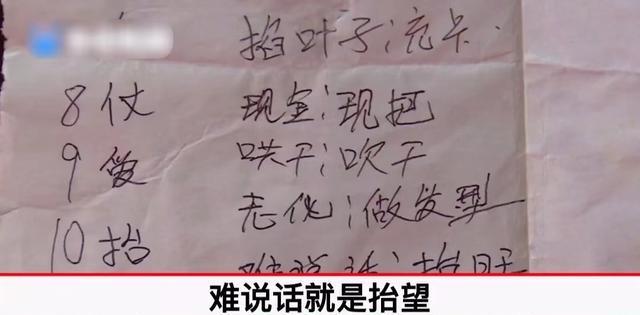 掐叶子:充卡
8仗 现金:现把
9爱 哄干:吹干
老化:做发型
10抬
难说话就是抬望